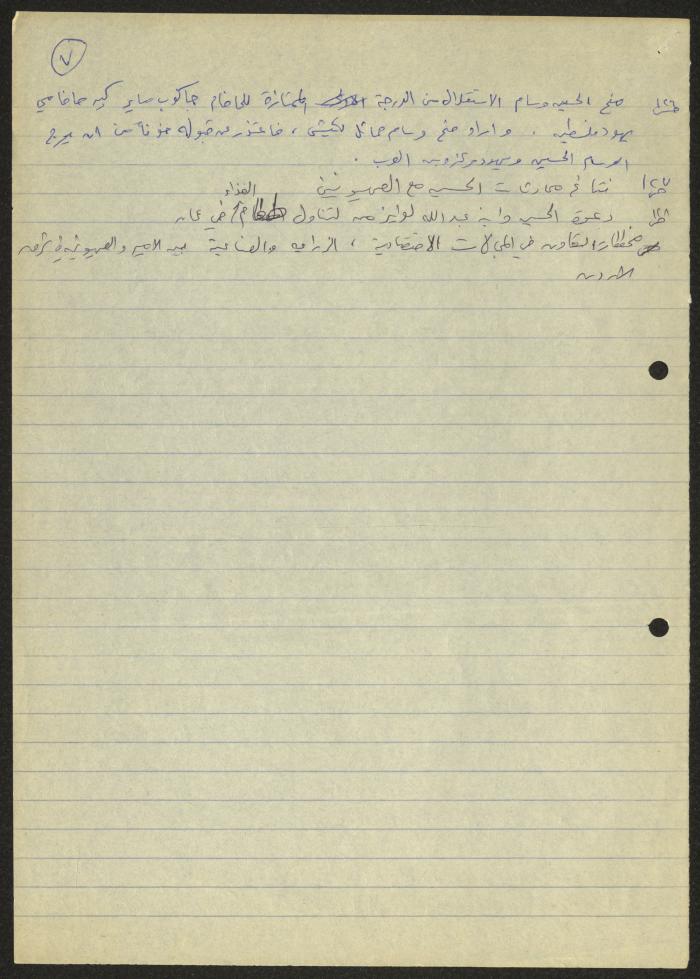 ٧
ص١٢٦ منح الحسين وسام الاستقلال من الدرجة الممتازة للحاخام جاكوب ماير كبير حاخامي
يهود فلسطين . واراد منح وسام مماثل لكيش ، فاعتذر عن قبوله خوفاً من ان يحرج
الوسام الحسين ويهود مركزه بين العرب .
ص١٢٧ نتائج محادثات الحسين مع الصهيونيين
ص١٢٨ دعوة الحسين وابنه عبدالله لوايزمن لتناول الغذاء في عمان
مخططات التعاون في المجالات الاقتصادية ، الزراعية والصناعية بين الامير والصهيونية في شرق
الاردن